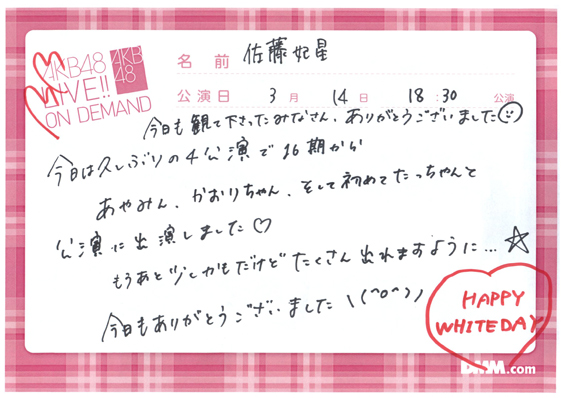 AKB48
LIVE!!
ON DEMAND
AKB
48
名前 佐藤妃星
公演日 3月 14日 18:30 公演
今日も観て下さったみなさん、ありがとうございました
今日は久しぶりの4公演で16期から
あやみん、かおりちゃん、そして初めてたっちゃんと
公演に出演しました♡
もうあと少しかもだけど たくさん出れますように…☆
今日もありがとうございました \(^o^)/
HAPPY
WHITEDAY
DMM.com